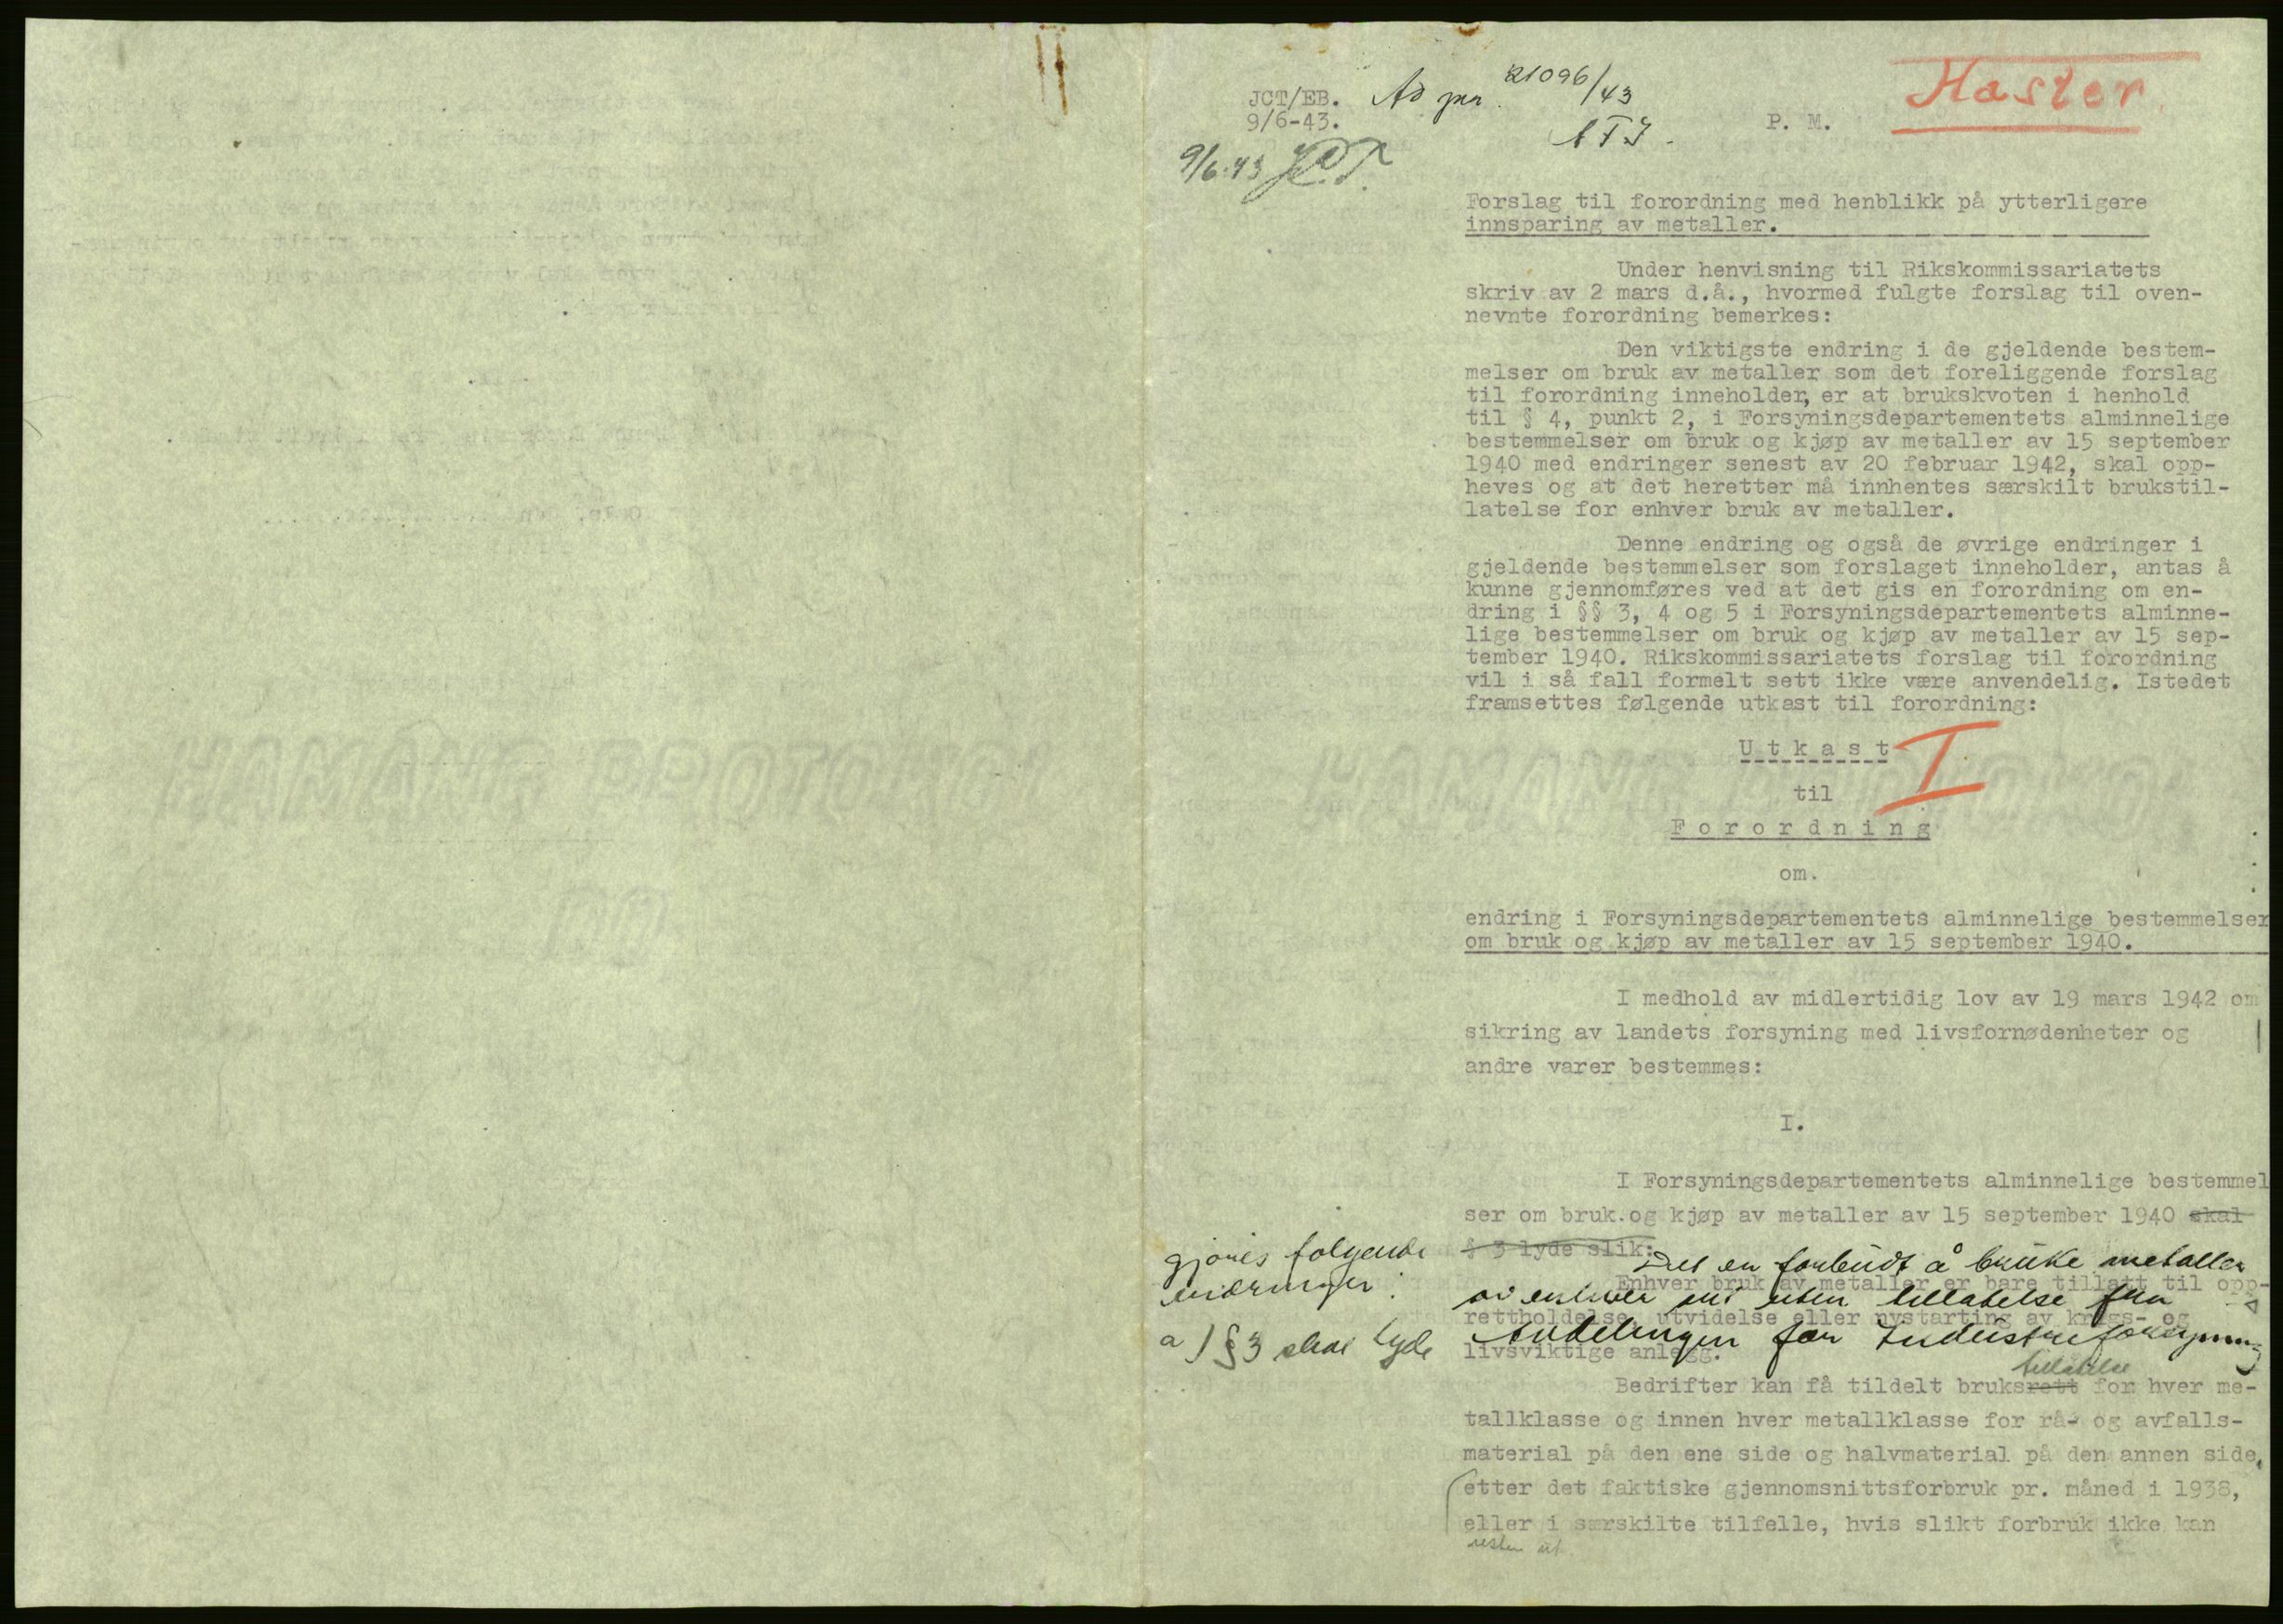 Haster
JCT/EB. Ad jnr. 21096/43
9/6-43.
P. M.
9/6.43
Forslag til forordning med henblikk på ytterligere
innsparing av metaller.
Under henvisning til Rikskommissariatets
skriv av 2 mars d.å., hvormed fulgte forslag til oven-
nevnte forordning bemerkes:
Den viktigste endring i de gjeldende bestem-
melser om bruk av metaller som det foreliggende forslag
til forordning inneholder, er at brukskvoten i henhold
til § 4, punkt 2, i Forsyningsdepartementets alminnelige
bestemmelser om bruk og kjøp av metaller av 15 september
1940 med endringer senest av 20 februar 1942, skal opp-
heves og at det heretter må innhentes særskilt brukstil-
latelse for enhver bruk av metaller.
Denne endring og også de øvrige endringer i
gjeldende bestemmelser som forslaget inneholder, antas å
kunne gjennomføres ved at det gis en forordning om en-
dring i §§ 3, 4 og 5 i Forsyningsdepartementets alminne-
lige bestemmelser om bruk og kjøp av metaller av 15 sep-
tember 1940. Rikskommissariatets forslag til forordning
vil i så fall formelt sett ikke være anvendelig. Istedet
framsettes følgende utkast til forordning:
U t k a s t I
til
F o r o r d n i n g
om.
endring i Forsyningsdepartementets alminnelige bestemmelser
om bruk og kjøp av metaller av 15 september 1940.
I medhold av midlertidig lov av 19 mars 1942 om
sikring av landets forsyning med livsfornødenheter og
andre varer bestemmes:
I.
I Forsyningsdepartementets alminnelige bestemmel
ser om bruk og kjøp av metaller av 15 september 1940 skal
§ 3 lyde slik:
gjøres følgende
endringer:
a) § 3 skal lyde
Det er forbudt å bruke metaller
Enhver bruk av metaller er bare tillatt til opp-
av enhver art uten tillatelse fra
rettholdelse, utvidelse eller nystarting av krigs- og
Avdelingen for Industriforsyning
livsviktige anlegg.
tillatelse
Bedrifter kan få tildelt bruksrett for hver me-
tallklasse og innen hver metallklasse for rå- og avfalls-
material på den ene side og halvmaterial på den annen side,
etter det faktiske gjennomsnittsforbruk pr. måned i 1938,
eller i særskilte tilfelle, hvis slikt forbruk ikke kan